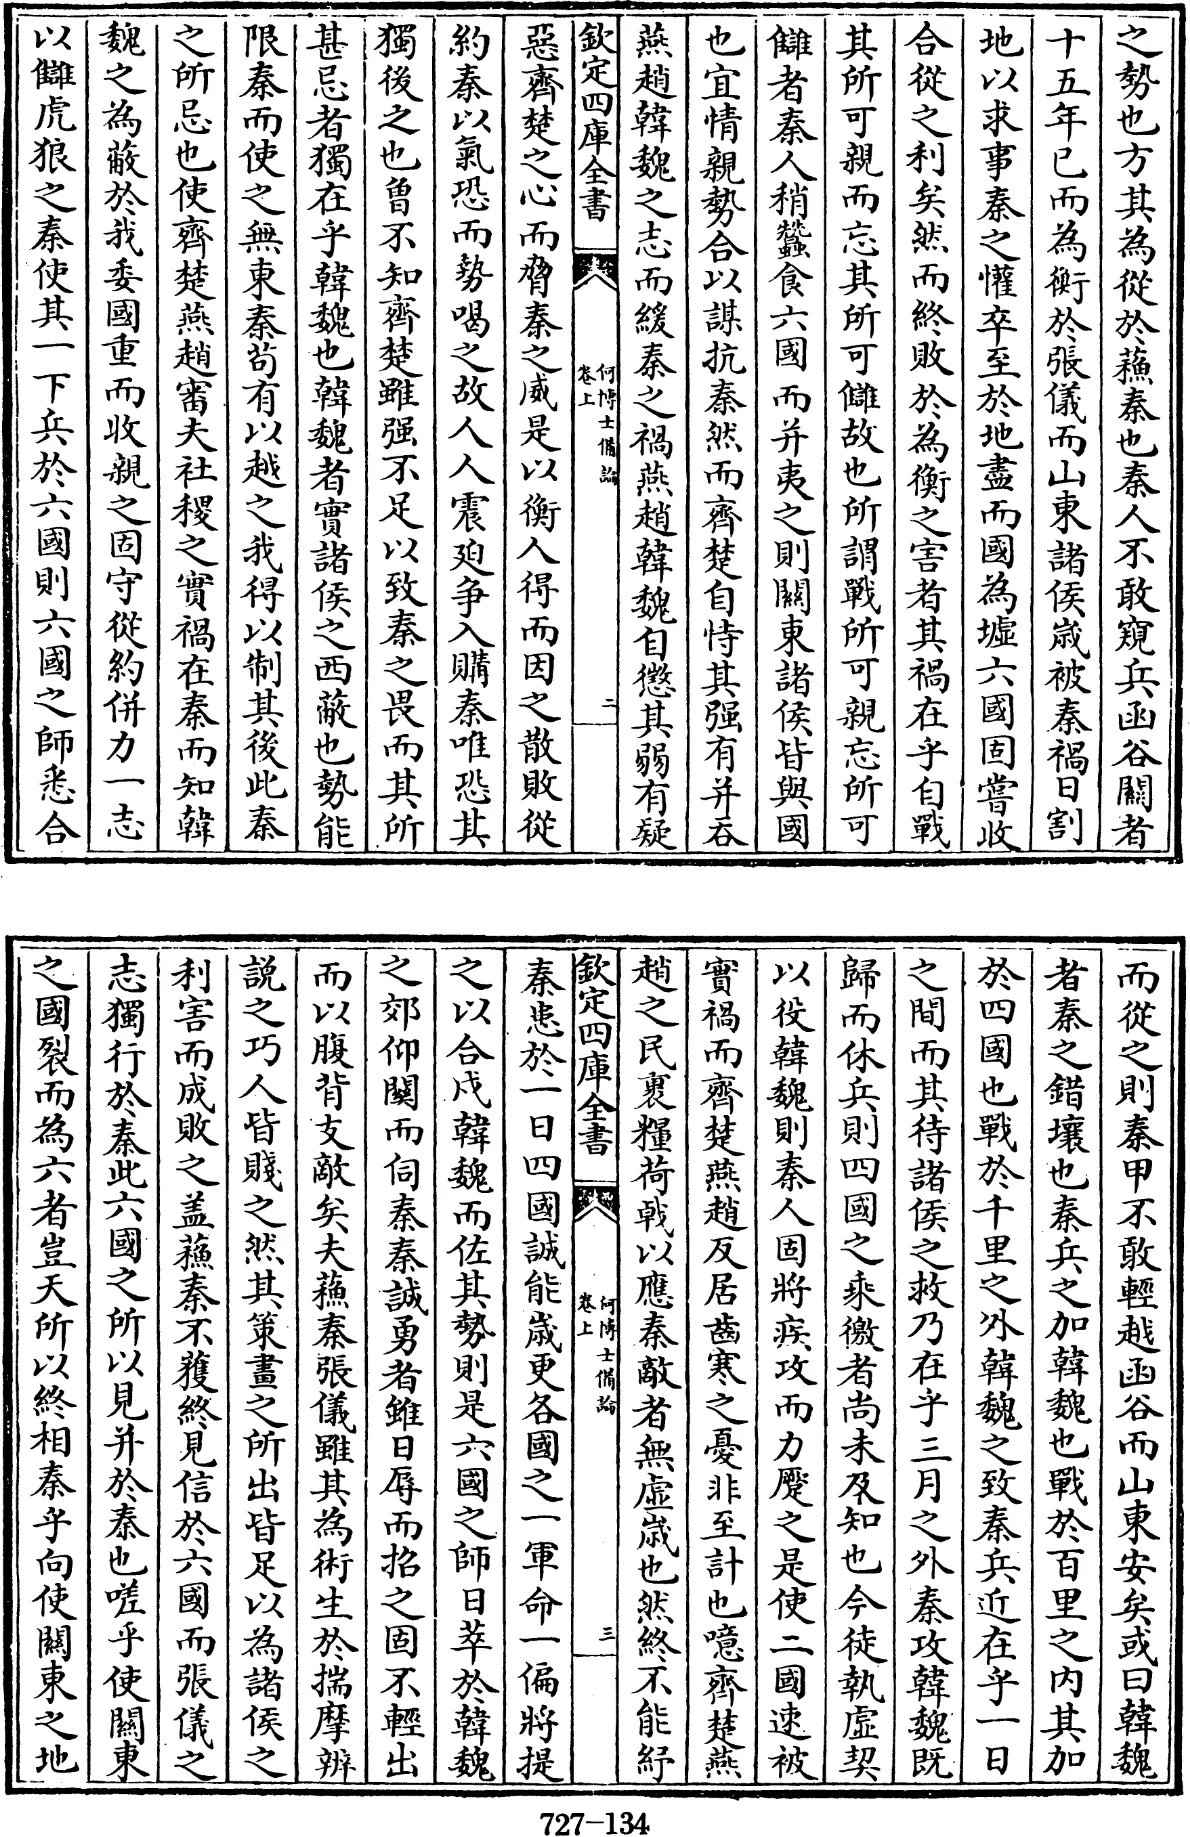 之勢也方其為從於蘓秦也秦人不敢窺兵函谷關者
十五年已而為衡於張儀而山東諸侯嵗被秦禍日割
地以求事秦之懽卒至於地盡而國為墟六國固嘗收
合從之利矣然而終敗於為衡之害者其禍在乎自戰
其所可親而忘其所可讎故也所謂戰所可親忘所可
讎者秦人稍蠶食六國而并夷之則關東諸侯皆與國
也宜情親勢合以謀抗秦然而齊楚自恃其强有并吞
燕趙韓魏之志而緩秦之禍燕趙韓魏自懲其弱有疑
欽定四庫全書
何博士備論
卷上
二
惡齊楚之心而脅秦之威是以衡人得而因之散敗從
約秦以氣恐而勢喝之故人人震廹争入購秦唯恐其
獨後之也曾不知齊楚雖强不足以致秦之畏而其所
甚忌者獨在乎韓魏也韓魏者實諸侯之西蔽也勢能
限秦而使之無東秦茍有以越之我得以制其後此秦
之所忌也使齊楚燕趙審夫社稷之實禍在秦而知韓
魏之為蔽於我委國重而收親之固守從約併力一志
以讎虎狼之秦使其一下兵於六國則六國之師悉合
而從之則秦甲不敢輕越函谷而山東安矣或曰韓魏
者秦之錯壤也秦兵之加韓魏也戰於百里之内其加
於四國也戰於千里之外韓魏之致秦兵近在乎一日
之間而其待諸侯之救乃在乎三月之外秦攻韓魏既
歸而休兵則四國之乘徼者尚未及知也今徒執虛契
以役韓魏則秦人固將疾攻而力蹷之是使二國速被
實禍而齊楚燕趙反居齒寒之憂非至計也噫齊楚燕
趙之民裹糧荷戟以應秦敵者無虚嵗也然終不能紓
欽定四庫全書
何博士備論
卷上
三
秦患於一日四國誠能嵗更各國之一軍命一偏將提
之以合戍韓魏而佐其勢則是六國之師日萃於韓魏
之郊仰關而伺秦秦誠勇者雖日辱而招之固不輕出
而以腹背支敵矣夫蘓秦張儀雖其為術生於揣摩辨
説之巧人皆賤之然其策畫之所出皆足以為諸侯之
利害而成敗之盖蘓秦不獲終見信於六國而張儀之
志獨行於秦此六國之所以見并於秦也嗟乎使關東
之國裂而為六者豈天所以終相秦乎向使關東之地
727-134